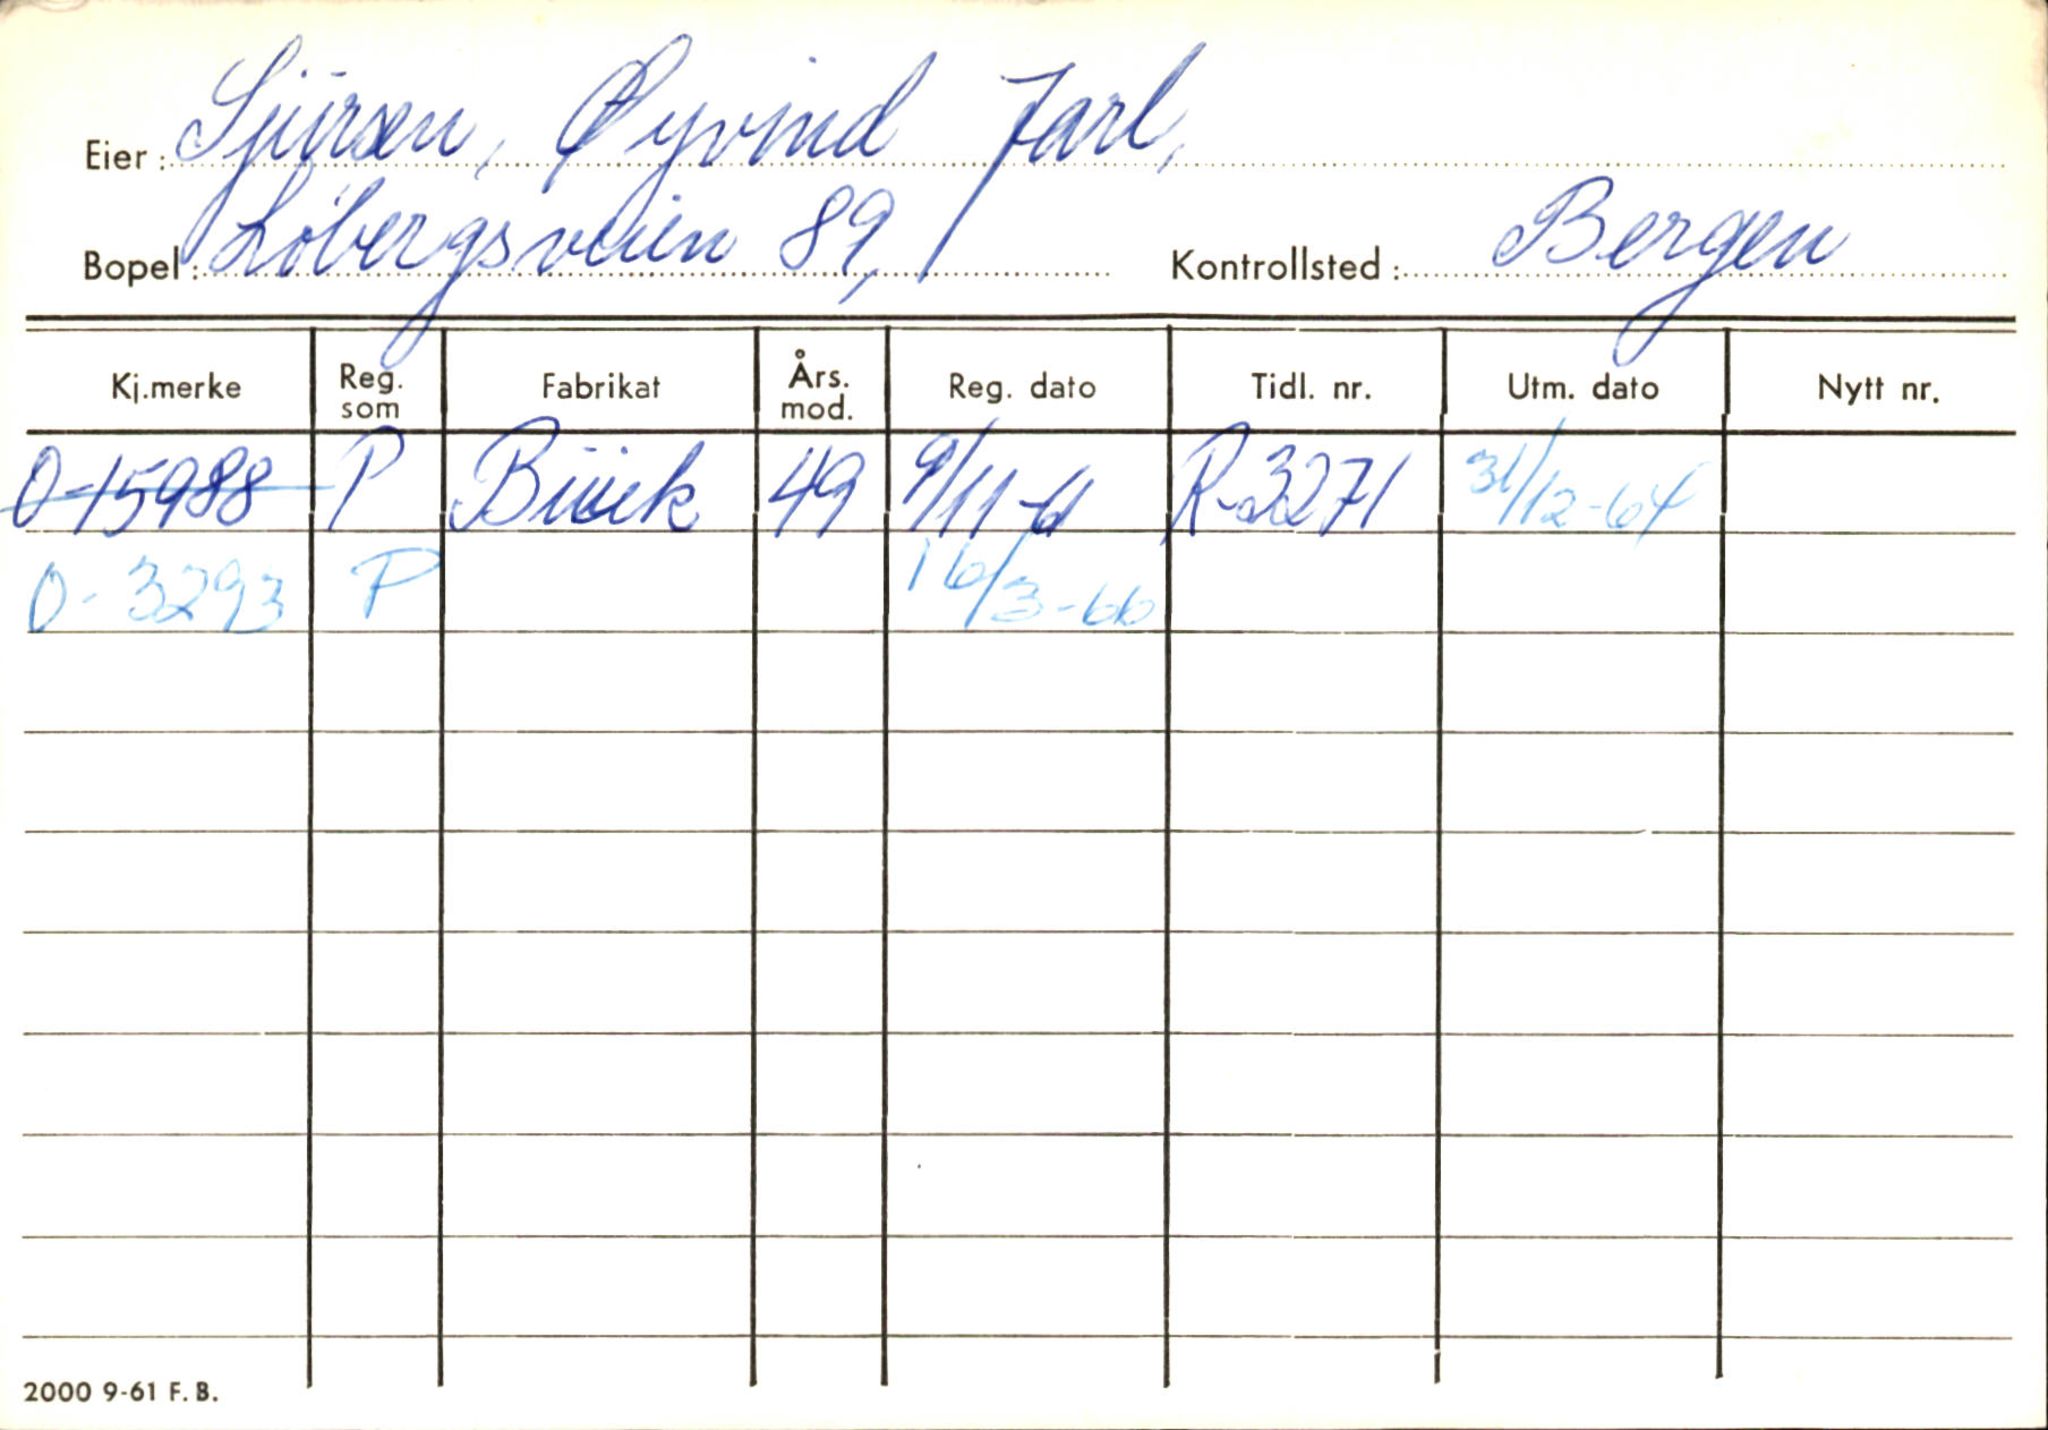 Eier: Sjursen, Øyvind Jarl,
Bopel: Løbergsveien 89, Kontrollsted: Bergen
Kj.merke Reg. som Fabrikat Års. mod. Reg. dato Tidl. nr. Utm. dato Nytt nr.
O-15988 P Buick 49 9/11-61 R-3271 31/12-64
O-3293 P 16/3-66
2000 9-61 F. B.